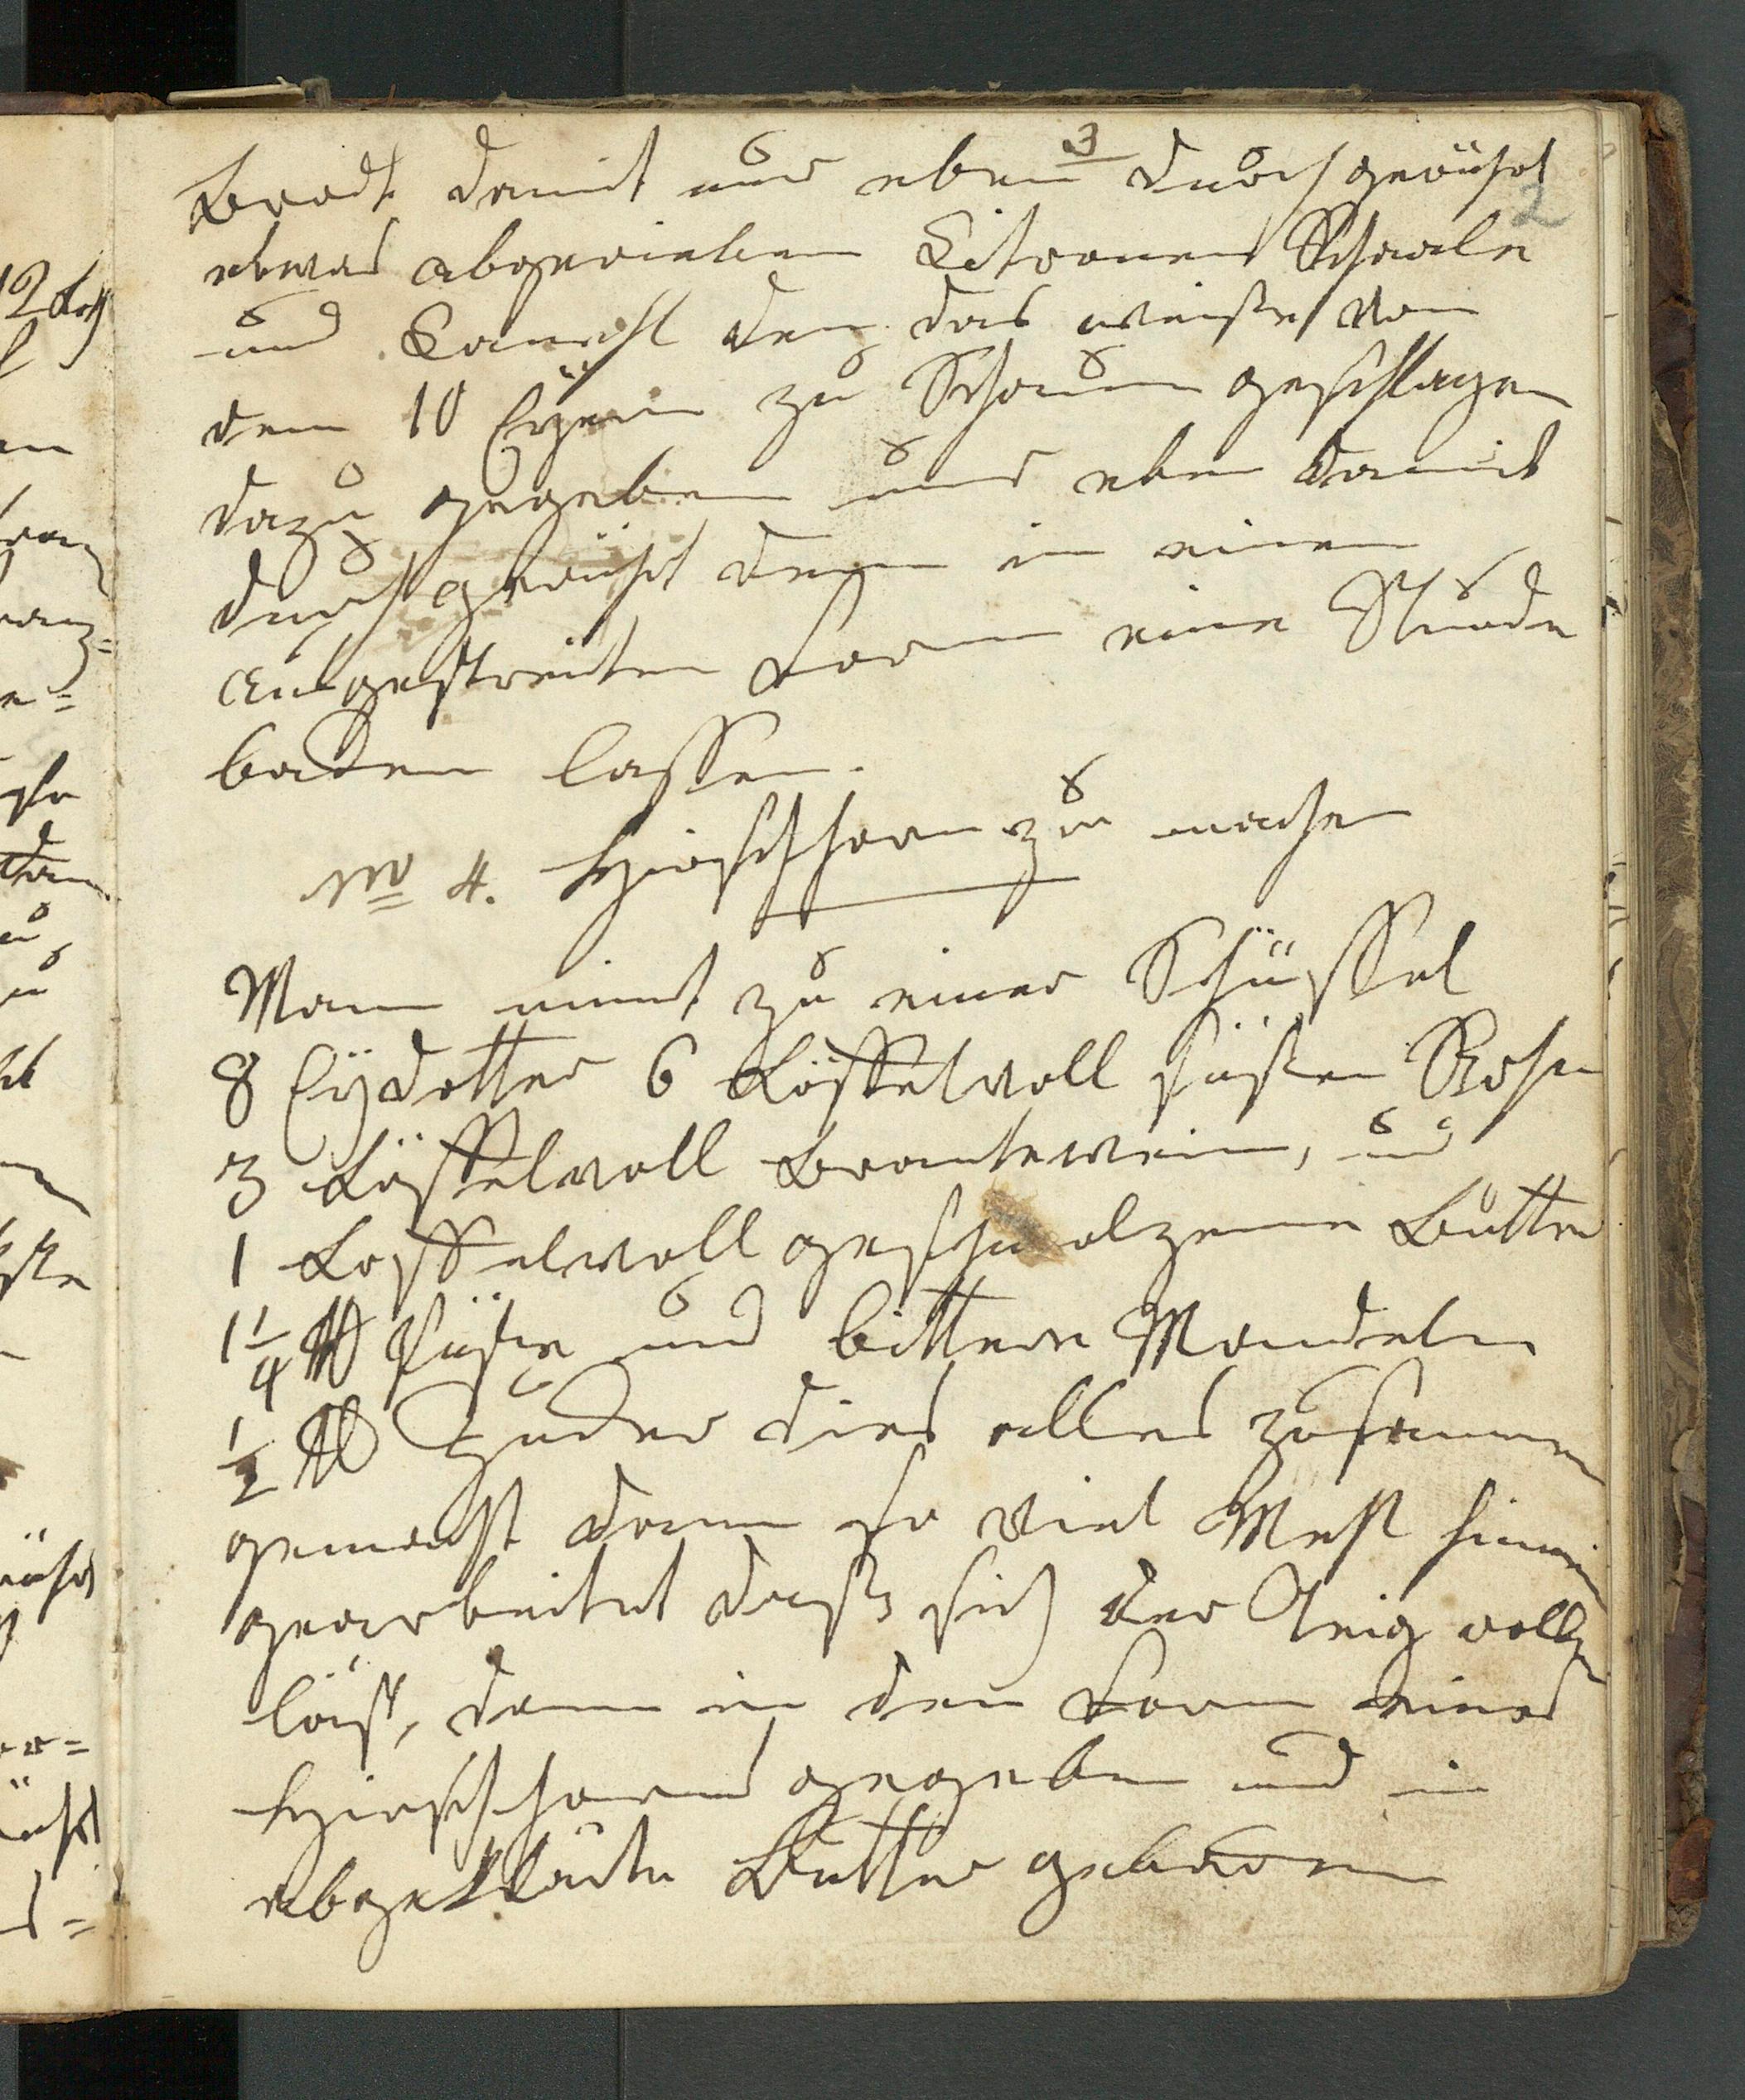 3
Brodt damit nur eben durch gerührt
2
etwas abgerieben Citronen Schaale
und Kaneehl den das weiße von
den 10 Eÿern zu Schaum geschlagen
dazu gegeben und eben damit
durch gerührt denn in einen
ausgestreuten Form eine Stunde
backen lassen.
No 4. Hirschhorn zu machen
Mann nimt zu einer Schüssel
8 Eÿdotter 6 Löffelvoll süßen Rohm
3 Löffelvoll Brantewein, und
1 Loffelvoll geschmolzene Butter
1 1/4 ℔ süße und bittere Mandeln
1/2 ℔ Zucker dies alles zusammen
gemacht dann so viel Mehl hinein
gearbeitet daß sich der Teig rollen
läßt, denn in den Form eines
Hirschhorns gegeben und in
abgeklärte Butter gebacken
12 Loth